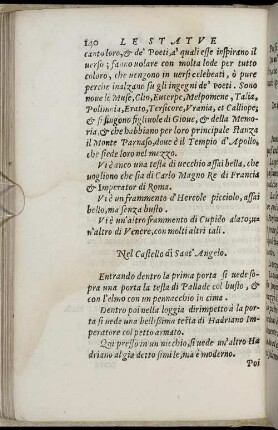 140 LE STATVE
canto loro, & de' Poeti, a' quali esse inspirano il
uerso; fanno uolare con molta lode per tutto
coloro, che uengono in uersi celebrati, ò pure
perche inalzano su gli ingegni de' poeti. Sono
noue le Muse, Clio, Euterpe, Melpomene, Talia,
Polimnia, Erato, Tersicore, Vrania, et Calliope;
& si fingono figliuole di Gioue, & della Memo-
ria, & che habbiano per loro principale stanza
il Monte Parnaso, doue è il Tempio d'Apollo,
che siede loro nel mezzo.
Vi è anco una testa di uecchio assai bella, che
uogliono che sia di Carlo Magno Re di Francia
& Imperator di Roma.
Vi è un frammento d'Hercole picciolo, assai
bello, ma senza busto.
Vi è un'altro frammento di Cupido alato; u-
n'altro di Venere, con molti altri tali.
Nel Castello di Sant' Angelo.
Entrando dentro la prima porta si uede so-
pra una porta la testa di Pallade col busto, &
con l'elmo con un pennacchio in cima.
Dentro poi nella loggia dirimpetto à la por-
ta si uede una bellissima testa di Hadriano Im-
peratore col petto armato.
Qui presso in un nicchio, si uede un'altro Ha
driano al gia detto simile, ma è moderno.
Poi